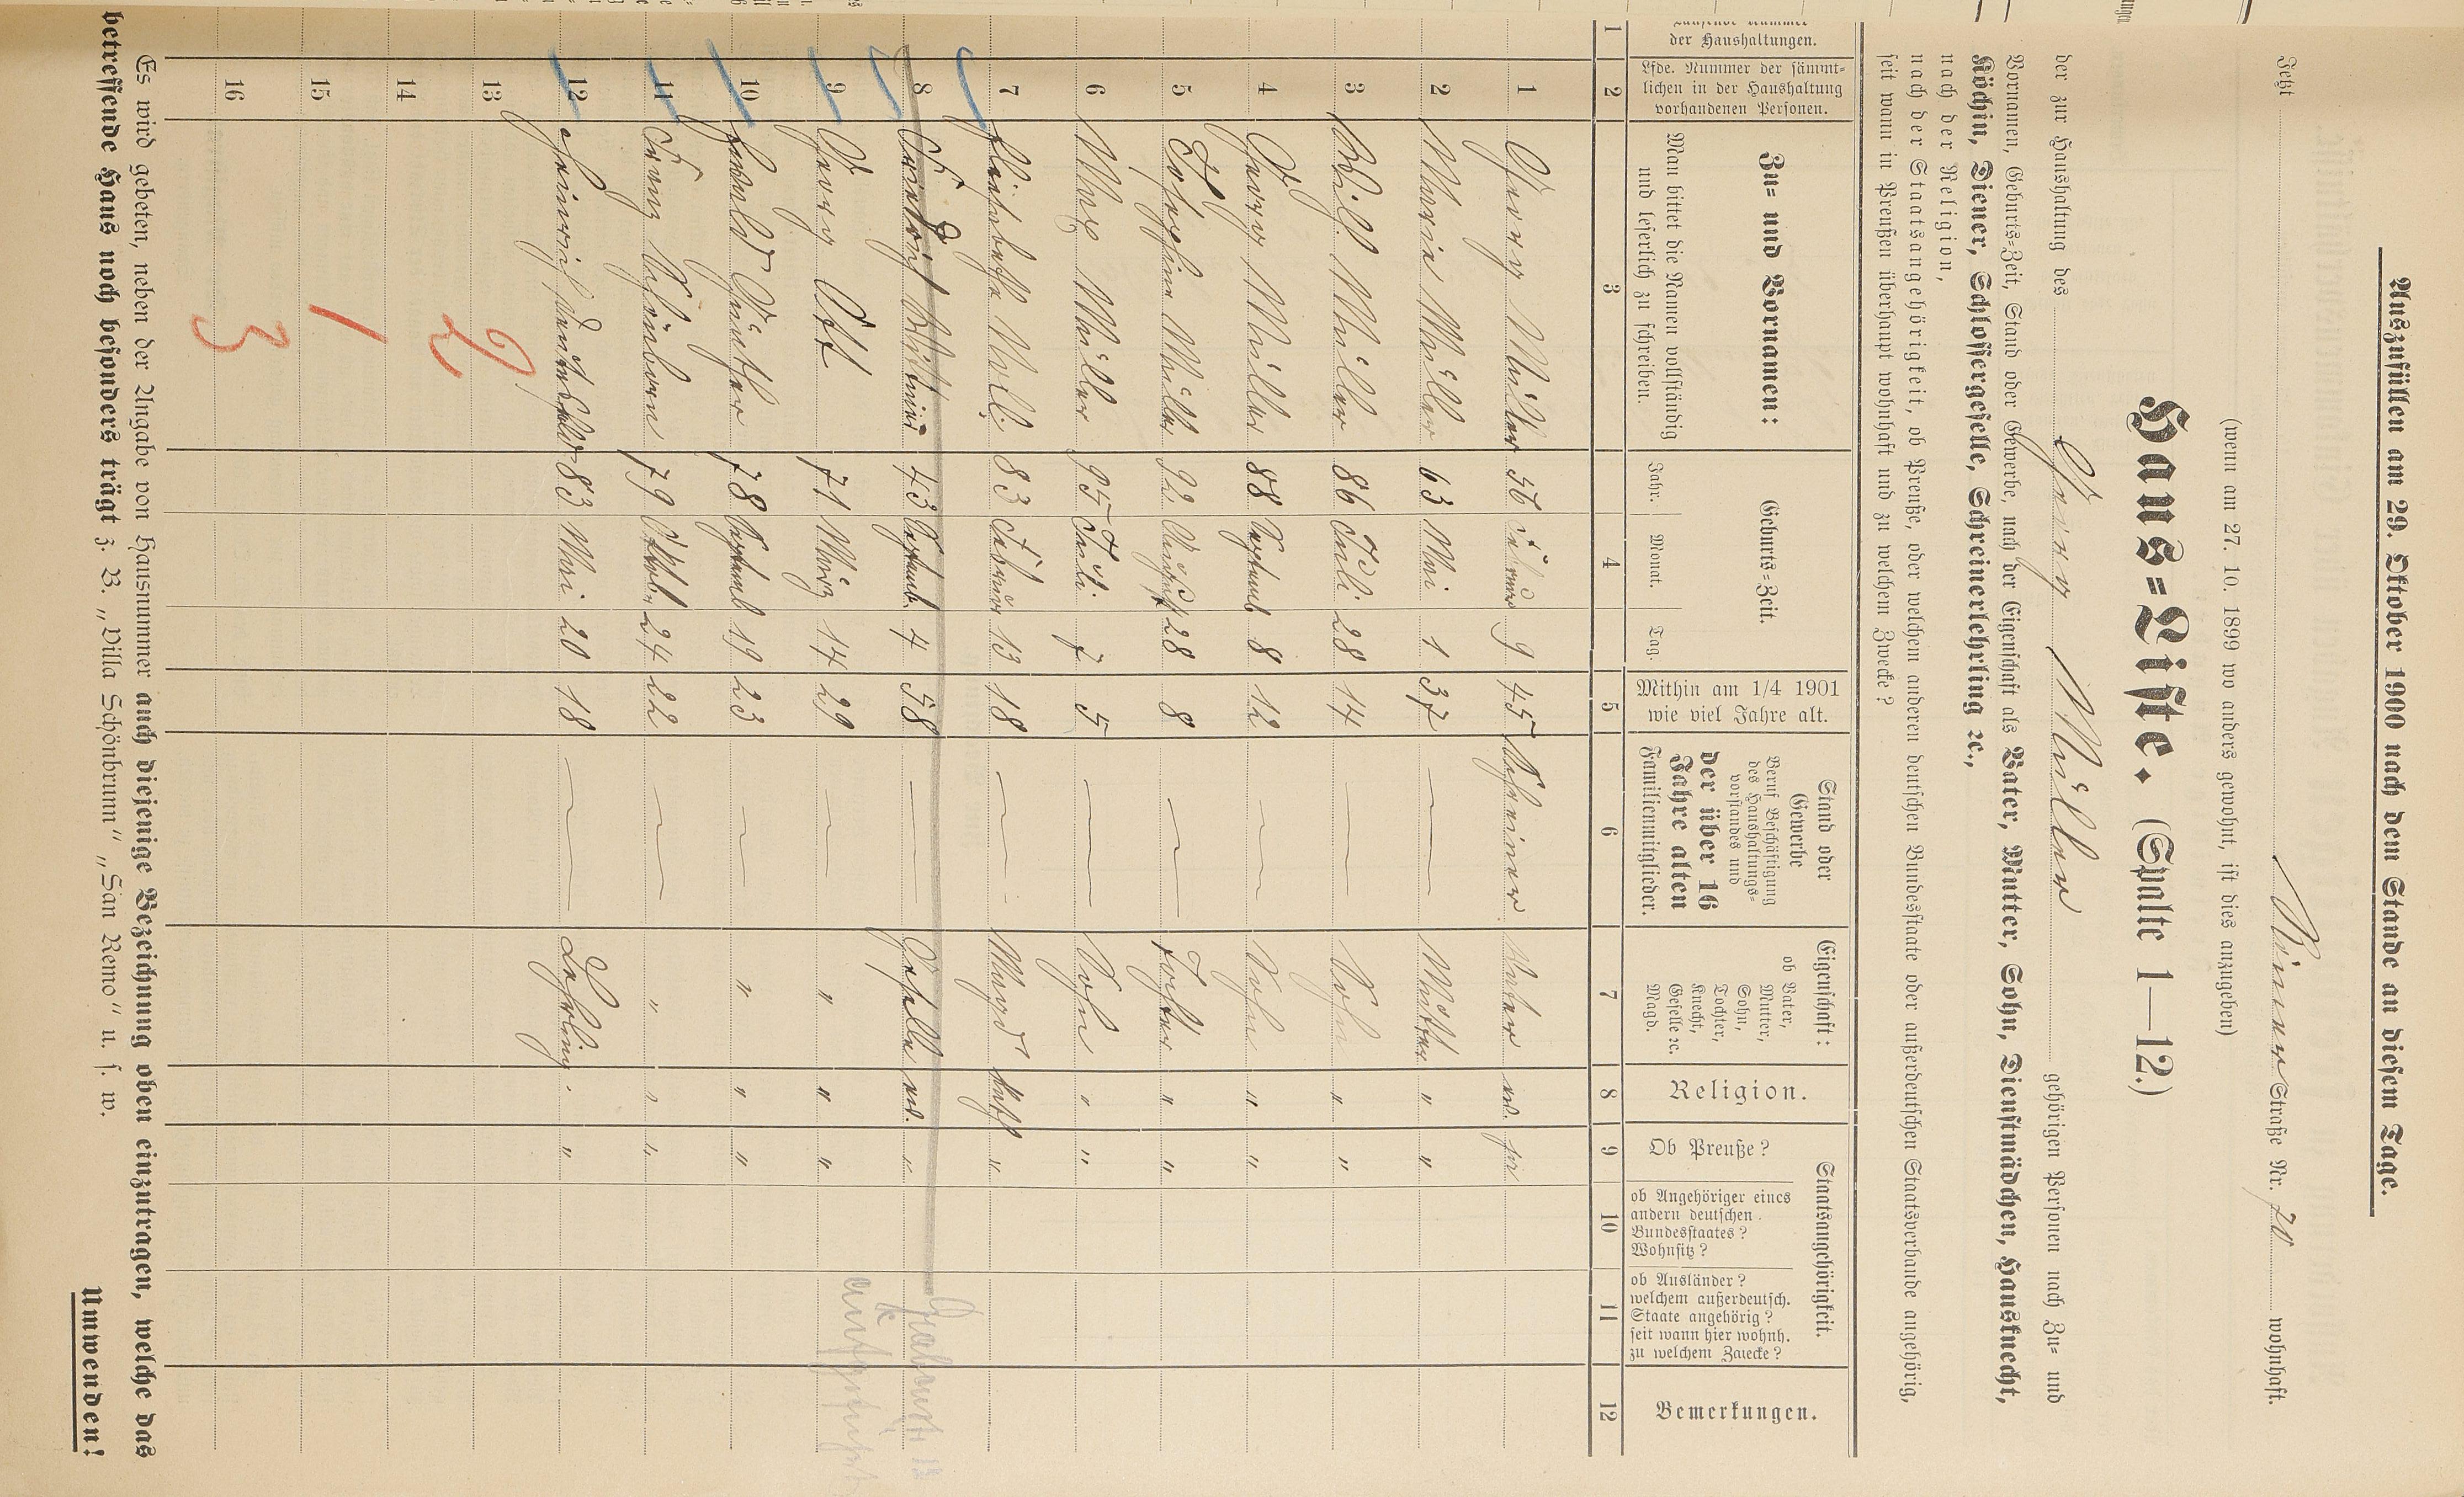 Auszufüllen am 29. Oktober 1900 nach dem Stande an diesem Tage.
Jetzt Straße Nr. 70 wohnhaft.
(wenn am 27. 10. 1899 wo anders gewohnt, ist dies anzugeben)
Haus=Liste. (Spalte 1—12.)
der zur Haushaltung des Georg Müller gehörigen Personen nach Zu= und
Vornamen, Geburts=Zeit, Stand oder Gewerbe, nach der Eigenschaft als Vater, Mutter, Sohn, Dienstmädchen, Hausknecht,
Köchin, Diener, Schlossergeselle, Schreinerlehrling ꝛc.,
nach der Religion,
nach der Staatsangehörigkeit, ob Preuße, oder welchem anderen deutschen Bundesstaate oder außerdeutschen Staatsverbande angehörig,
seit wann in Preußen überhaupt wohnhaft und zu welchem Zwecke?
Laufende Nummer der Haushaltungen.
Lfde. Nummer der sämmt=lichen in der Haushaltung vorhandenen Personen.
Zu= und Vornamen:
Man bittet die Namen vollständig und leserlich zu schreiben.
Geburts=Zeit.
Jahr. Monat. Tag.
Mithin am 1/4 1901 wie viel Jahre alt.
Stand oder Gewerbe
Beruf Beschäftigung des Haushaltungs=vorstandes und
der über 16 Jahre alten Familienmitglieder.
Eigenschaft:
ob Vater, Mutter, Sohn, Tochter, Knecht, Geselle ꝛc. Magd.
Religion.
Staatsangehörigkeit.
Ob Preuße?
ob Angehöriger eines andern deutschen Bundesstaates? Wohnsitz?
ob Ausländer? welchem außerdeutsch. Staate angehörig? seit wann hier wohnh. zu welchem Zwecke?
Bemerkungen.
1 2 3 4 5 6 7 8 9 10 11 12
1 Georg Müller 56 9 45 Schreiner Vater ev. ja
2 Maria Müller 63 Mai 1 37 — Mutter " "
3 Wilh. Müller 86 Juli 28 14 — Sohn " "
4 Georg Müller 88 Septemb 8 12 — Sohn " "
5 Josephine Müller 92 August 28 8 — Tochter " "
6 Max Müller 95 Juli 7 5 — Sohn " "
7 83 Februar 13 18 — Magd kath "
8 Friedrich 43 Septemb. 4 58 — Geselle ev. "
9 Georg Ott 71 März 14 29 — " " "
10 78 Septemb 19 23 — " " "
11 Franz 79 Oktober 24 22 — " " "
12 Heinrich 83 Mai 20 18 — Lehrling. "
13
14
15
16
2
1
3
Es wird gebeten, neben der Angabe von Hausnummer auch diejenige Bezeichnung oben einzutragen, welche das
betreffende Haus noch besonders trägt z. B. „Villa Schönbrunn“ „San Remo“ u. s. w.
Umwenden!